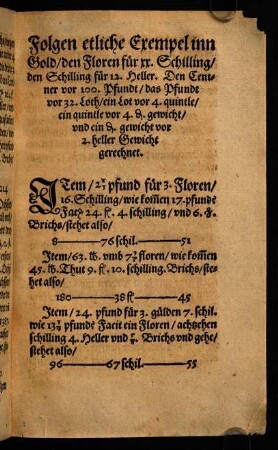 Folgen etliche Exempel inn
Gold/den Floren für xx. Schilling/
den Schilling für 12. Heller. Den Cent-
ner vor 100. Pfundt/das Pfundt
vor 32. Loth/ein Lot vor 4. quintle/
ein quintle vor 4. ₰. gewicht/
vnd ein ₰. gewicht vor
2. heller Gewicht
gerechnet.
ITem/2 pfund für 3. Floren/
16. Schilling/wie kom̄en 17. pfunde
Facit 24. fl. 4. schilling/vnd 6.
Brichs/stehet also/
8——76 schil.——51
Item/63. lb. vmb 7 floren/wie kom̄en
45. lb. Thut 9. fl. 10. schilling. Brichs/ste-
het also/
180——38 fl——45
Item/24. pfund für 3. gülden 7. schil.
wie 13 pfunde Facit ein Floren/achtzehen
schilling 4. Heller vnd Brichs vnd gehe/
stehet also/
96——67 schil.——55